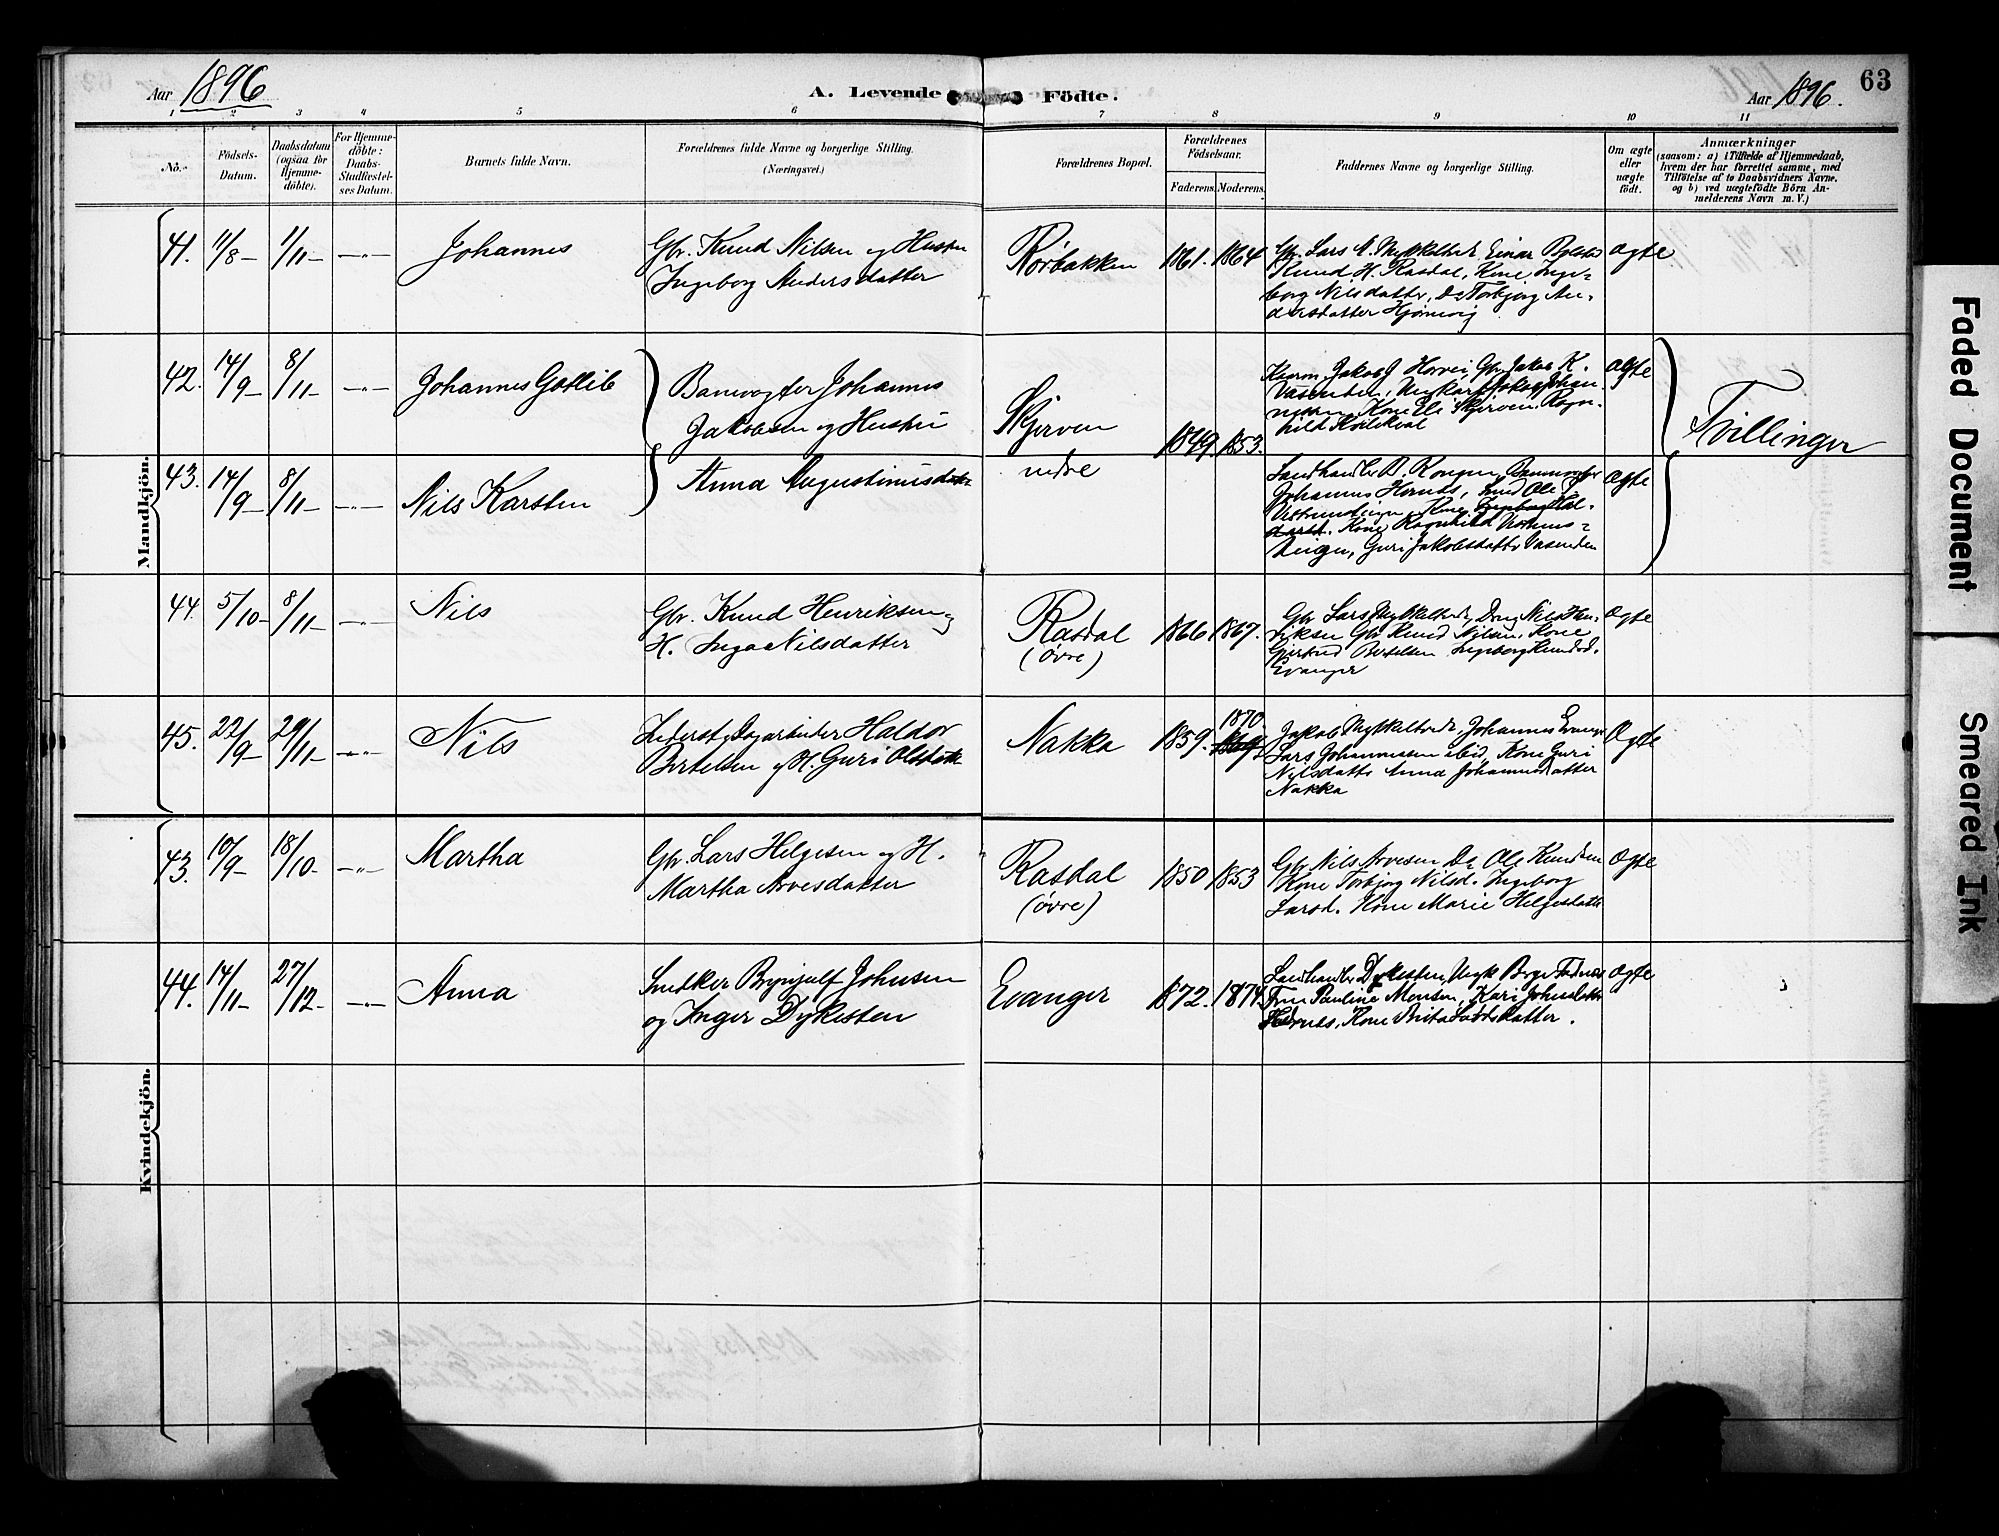 Aar 1896
A. Levende Födte.
Aar 1896.
63
1 2 3 4 5 6 7 8 9 10 11
No.
Födsels-
Datum.
Daabsdatum
(ogsaa for
Hjemme-
döbte).
For Hjemme-
döbte:
Daabs-
Stadfæstel-
ses Datum.
Barnets fulde Navn.
Forældrenes fulde Navne og borgerlige Stilling.
(Næringsvei.)
Forældrenes Bopæl.
Forældrenes
Födselsaar.
Faderens. Moderens.
Faddernes Navne og borgerlige Stilling.
Om ægte
eller
uægte
födt.
Anmærkninger
(saasom: a) i Tilfælde af Hjemmedaab,
hvem der har forrettet samme, med
Tilföielse af to Daabsvidners Navne,
og b) ved uægtefödte Börn An-
melderens Navn m. V.)
Mandkjön.
41. 11/8 1/11 -"- Johannes
Gbr. Knud Nilsen og Hustru
Ingeborg Andersdatter
Rørbakken 1861. 1864
Gbr. Lars N. Mykkeltvedt, Einar
Knud H. Rasdal, Kone Inge-
borg Nilsdatter, Do Torbjørg An-
dersdatter Hjørnevig
Ægte
42. 14/9 8/11 -"- Johannes Gotlib
43. 14/9 8/11 -"- Nils Karsten
Banevogter Johannes
Jakobsen og Hustru
Anna Augustinusdatter
Skjerven
nedre
1849. 1853.
Jakob J Horvei, Gbr. Jakob K.
Vasenden, Ungkarl Jakob Johan-
Kone Eli Skjerven, Ragn-
hild
Ægte
Landhandler B. Rongen, Banevogter
Johannes Hernes, Ole
Kone Ingeborg
Kone Ragnhild
Guri Jakobsdatter Vasenden
Ægte
Tvillinger
44. 5/10 8/11 -"- Nils
Gbr. Knud Henriksen og
H. Inga Nilsdatter
Rasdal
(øvre)
1866 1867.
Gbr Lars Mykkeltvedt, Dreng Nils Hen-
riksen Gbr Knud Nilsen, Kone
Gjertrud Bertelsen Ingeborg Knudsd.
Evanger
Ægte
45. 22/9 29/11 -"- Nils
Dagarbeider Haldor
Bertelsen og H. Guri Olsdatter
Nakka 1859. 1870.
1869
Jakob Mykkeltvedt, Johannes Evanger
Lars Johannessen ibid, Kone Guri
Nilsdatter Anna Johannesdatter
Nakka
Ægte
Kvindekjön.
43. 10/9 18/10 -"- Martha
Gbr. Lars Helgesen og H.
Martha Arvesdatter
Rasdal
(øvre)
1850 1853
Gbr Nils Arvesen Do Ole Knudsen
Kone Torbjørg Nilsd. Ingeborg
Larsd. Kone Marie Helgesdatter
Ægte
44. 14/11 27/12 -"- Anna
Snedker Brynjulf Johnsen
og Inger Dykesten
Evanger 1872. 1874.
Landhandler Dykesten, Ungk Børge
Frue Pauline Monsen, Kari Johnsdatter
Hernes, Kone Brita
Ægte
Faded Document
Smeared Ink